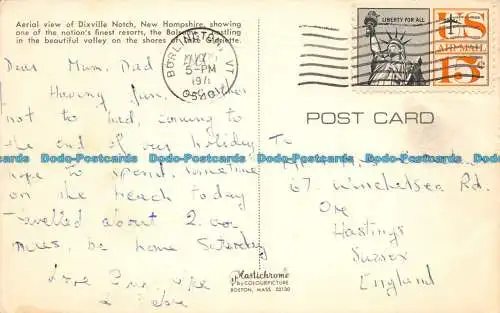 Aerial view of Dixville Notch, New Hampshire, showing
one of the nation's finest resorts, the Balsams, nestling
in the beautiful valley on the shores of Lake Gloriette.
BURLINGTON, VT
5-PM
1971
LIBERTY FOR ALL
US
AIR MAIL
15¢
POST CARD
Dear Mum, Dad
Having fun,
not to bad, coming to
the end of our holiday
hope to spend sometime
on the beach today
Travelled about 2,000
miles, be home Saturday
love
To
67 Winchelsea Rd.
Ore
Hastings
Sussex
England
Plastichrome
BY COLOURPICTURE
BOSTON, MASS 02130
Dodo-Postcards Dodo-Postcards Dodo-Postcards Dodo-Postcards
Dodo-Postcards Dodo-Postcards Dodo-Postcards Dodo-Postcards